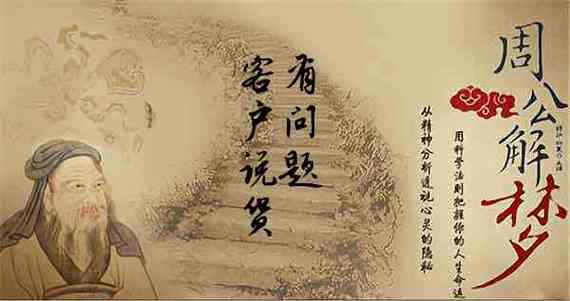 周公解梦
用科学法则把握你的人生命运
从精神分析透视心灵的隐秘
客户说货
有问题